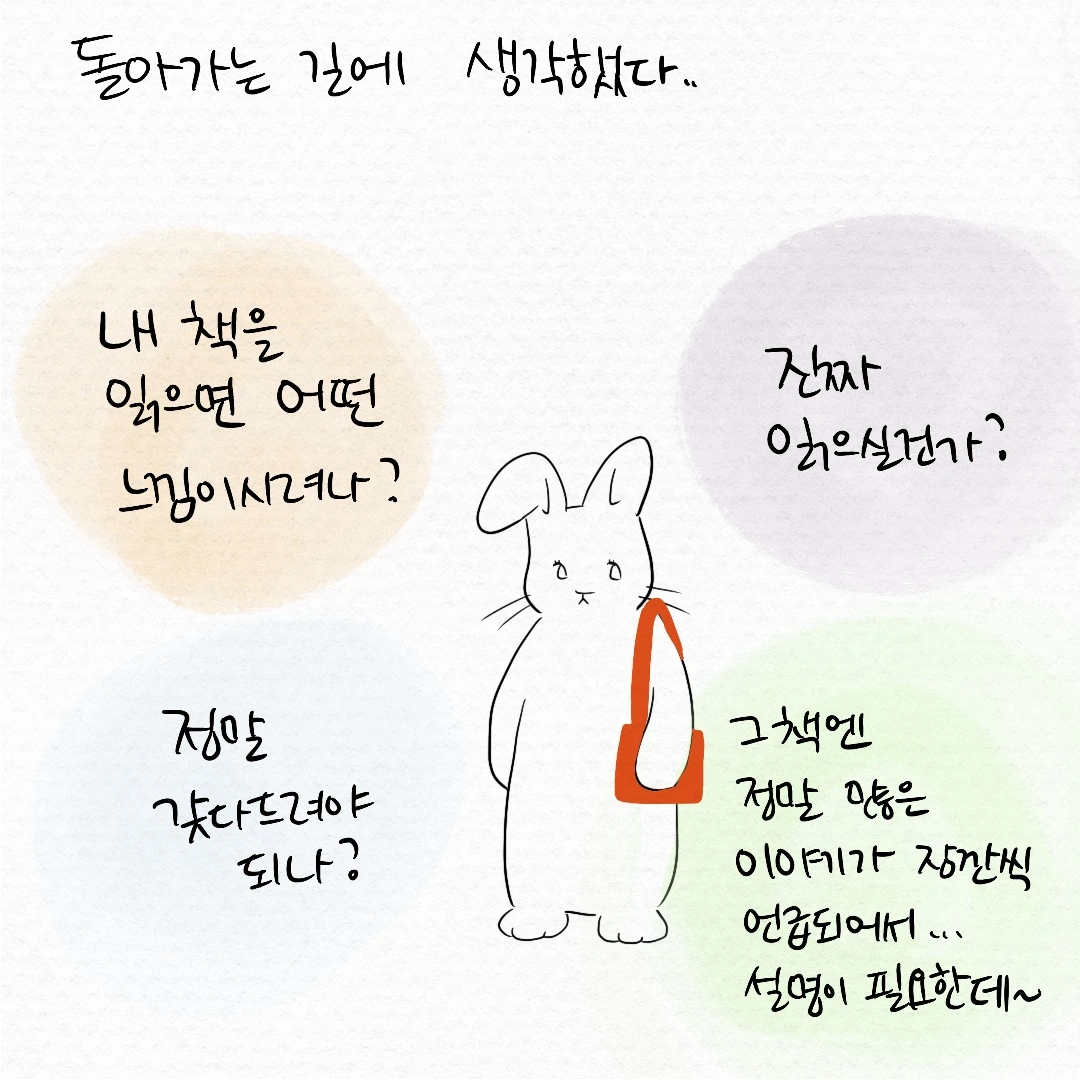 돌아가는 길에 생각했다..
내 책을
읽으면 어떤
느낌이시려나?
진짜
읽으실건가?
정말
갖다드려야
되나?
그 책엔
정말 많은
이야기가 잠깐씩
언급되어서...
설명이 필요한데~